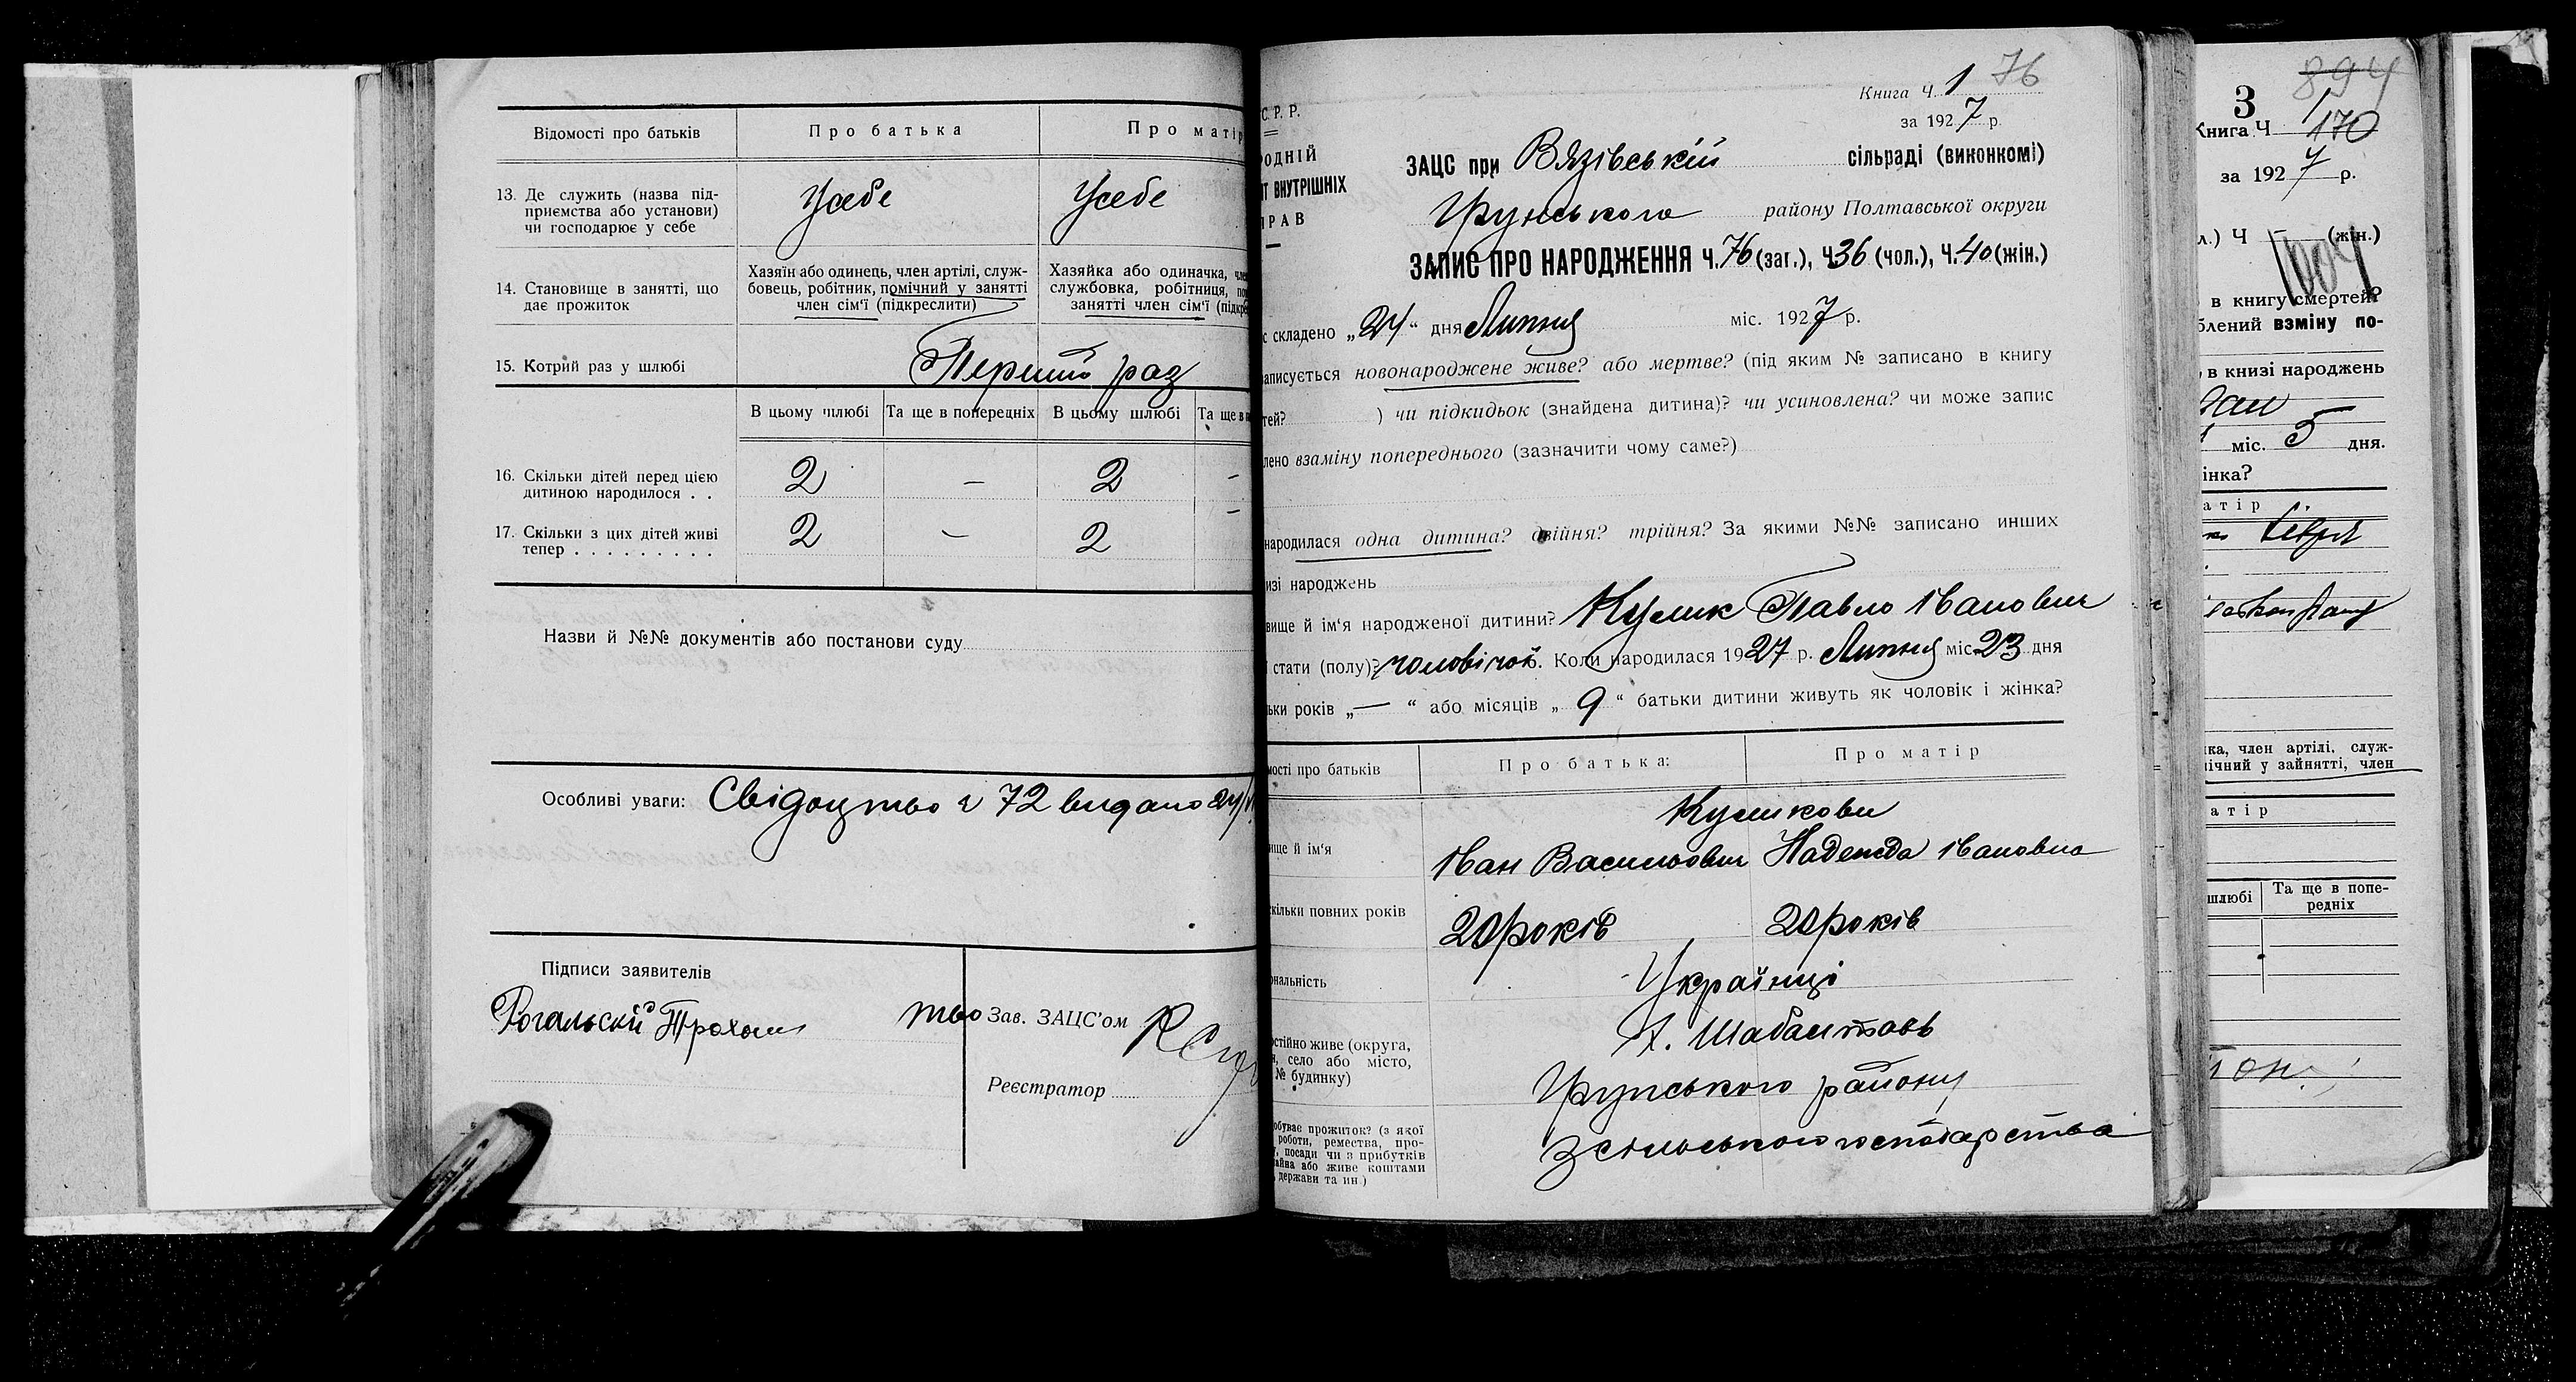 Відомості про батьків
Про батька
Про матір
13. Де служить (назва під-
приємства або установи)
чи господарює у себе
Усебе
Усебе
14. Становище в занятті, що
дає прожиток
Хазяїн або одинець, член артілі, служ-
бовець, робітник, помічний у занятті
член сім'ї (підкреслити)
Хазяйка або одиначка,
службовка, робітниця,
занятті член сім'ї
15. Котрий раз у шлюбі
Перший раз
В цьому шлюбі
Та ще в попередніх
В цьому шлюбі
Та ще в
16. Скільки дітей перед цією
дитиною народилося . .
2 — 2 —
17. Скільки з цих дітей живі
тепер . . . . . . . . .
2 — 2 —
Назви й №№ документів або постанови суду
Особливі уваги: Свідоцтво ч 72 видано 24/
Підписи заявителів
Рогальский Трохим
тво Зав. ЗАЦС'ом
Реєстратор
76
Книга Ч. 1
за 1927 р.
С. Р. Р.
ОДНІЙ
Т ВНУТРІШНІХ
РАВ
ЗАЦС при Вязівській сільраді (виконкомі)
Грунського району Полтавської округи
ЗАПИС ПРО НАРОДЖЕННЯ Ч. 76 (заг.), Ч 36 (чол.), Ч. 40 (жін.)
с складено „24“ дня Липня міс. 1927 р.
аписується новонароджене живе? або мертве? (під яким № записано в книгу
тей? ) чи підкидьок (знайдена дитина)? чи усиновлена? чи може запис
лено взаміну попереднього (зазначити чому саме?)
народилася одна дитина? двійня? трійня? За якими №№ записано инших
изі народжень
вище й ім'я народженої дитини? Кулик Павло Іванович
стати (полу)? чоловічої. Коли народилася 1927 р. Липня міс. 23 дня
ьки років „—“ або місяців „9“ батьки дитини живуть як чоловік і жінка?
мості про батьків
Про батька:
Про матір
Куликови
ище й ім'я
Іван Васильович Надежда Івановна
скільки повних років
20 років 20 років
ональність
Українці
остійно живе (округа,
н, село або місто,
№ будинку)
Х. Шабалтаєв
Грунського району
обуває прожиток? (з якої
роботи, ремества, про-
, посади чи з прибутків
айна або живе коштами
держави та ин.)
З сільського господарства
894
3
Книга Ч 1
170
за 1927 р.
л.) Ч — (жін.)
в книгу смертей?
блений взміну по-
в книзі народжень
міс. 5 дня.
інка?
атір
ка, член артілі, служ-
ічний у зайнятті, член
атір
шлюбі
Та ще в попе-
редніх